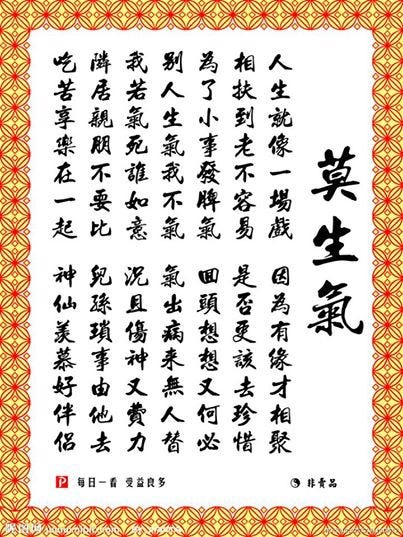 莫生氣
人生就像一場戲
因為有緣才相聚
相扶到老不容易
是否更該去珍惜
為了小事發脾氣
回頭想想又何必
別人生氣我不氣
氣出病來無人替
我若氣死誰如意
況且傷神又費力
隣居親朋不要比
兒孫瑣事由他去
吃苦享樂在一起
神仙羨慕好伴侶
P 每日一看 受益良多
非賣品